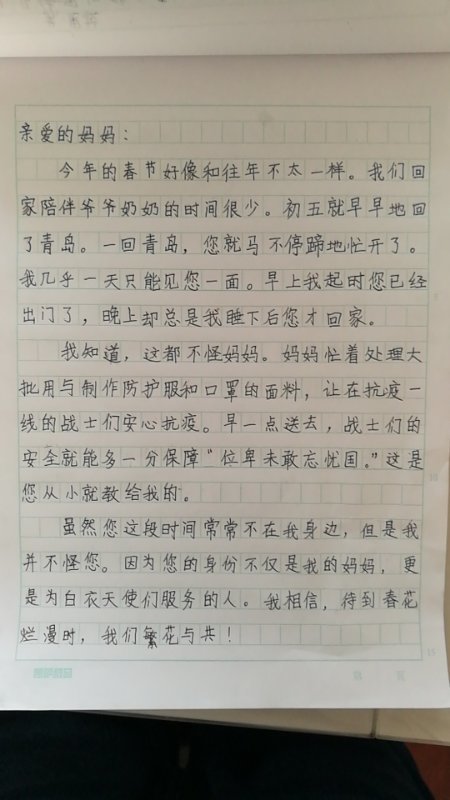 亲爱的妈妈：
今年的春节好像和往年不太一样。我们回
家陪伴爷爷奶奶的时间很少。初五就早早地回
了青岛。一回青岛，您就马不停蹄地忙开了。
我几乎一天只能见您一面。早上我起时您已经
出门了，晚上却总是我睡下后您才回家。
我知道，这都不怪妈妈。妈妈忙着处理大
批用与制作防护服和口罩的面料，让在抗疫一
线的战士们安心抗疫。早一点送去，战士们的
安全就能多一分保障“位卑未敢忘忧国。”这是
您从小就教给我的。
虽然您这段时间常常不在我身边，但是我
并不怪您。因为您的身份不仅是我的妈妈，更
是为白衣天使们服务的人。我相信，待到春花
烂漫时，我们繁花与共！
10
15